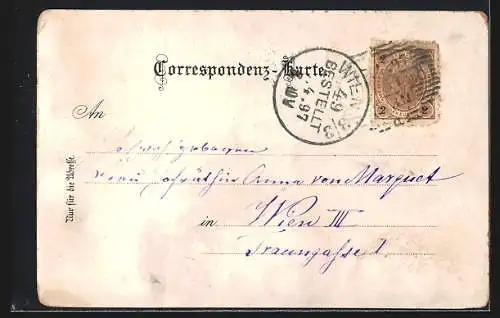 Correspondenz-Karte
WIEN 3/3
49
BESTELLT
4.97
An
Hochwohlgeboren
Frau Hofräthin Anna von Marquet
in Wien III
Traungasse 1
Nur für die Adresse.